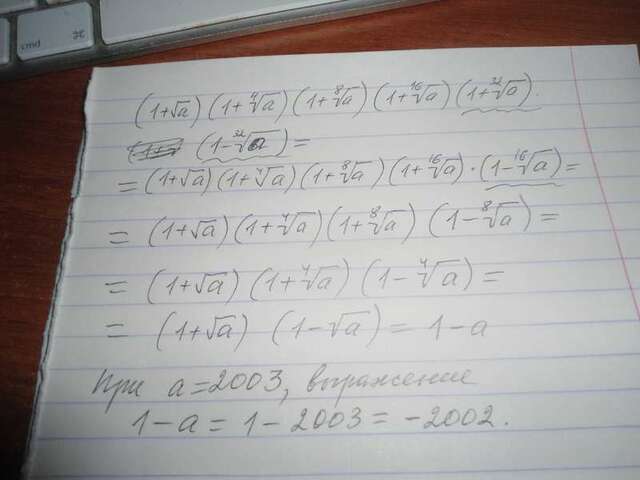 cmd ⌘
(1+√a)(1+⁴√a)(1+⁸√a)(1+¹⁶√a)(1+³²√a).
(1-³²√a)=
=(1+√a)(1+⁴√a)(1+⁸√a)(1+¹⁶√a)·(1-¹⁶√a)=
= (1+√a)(1+⁴√a)(1+⁸√a)(1-⁸√a)=
= (1+√a)(1+⁴√a)(1-⁴√a)=
= (1+√a)(1-√a)=1-a
При a=2003, выражение
1-a=1-2003=-2002.